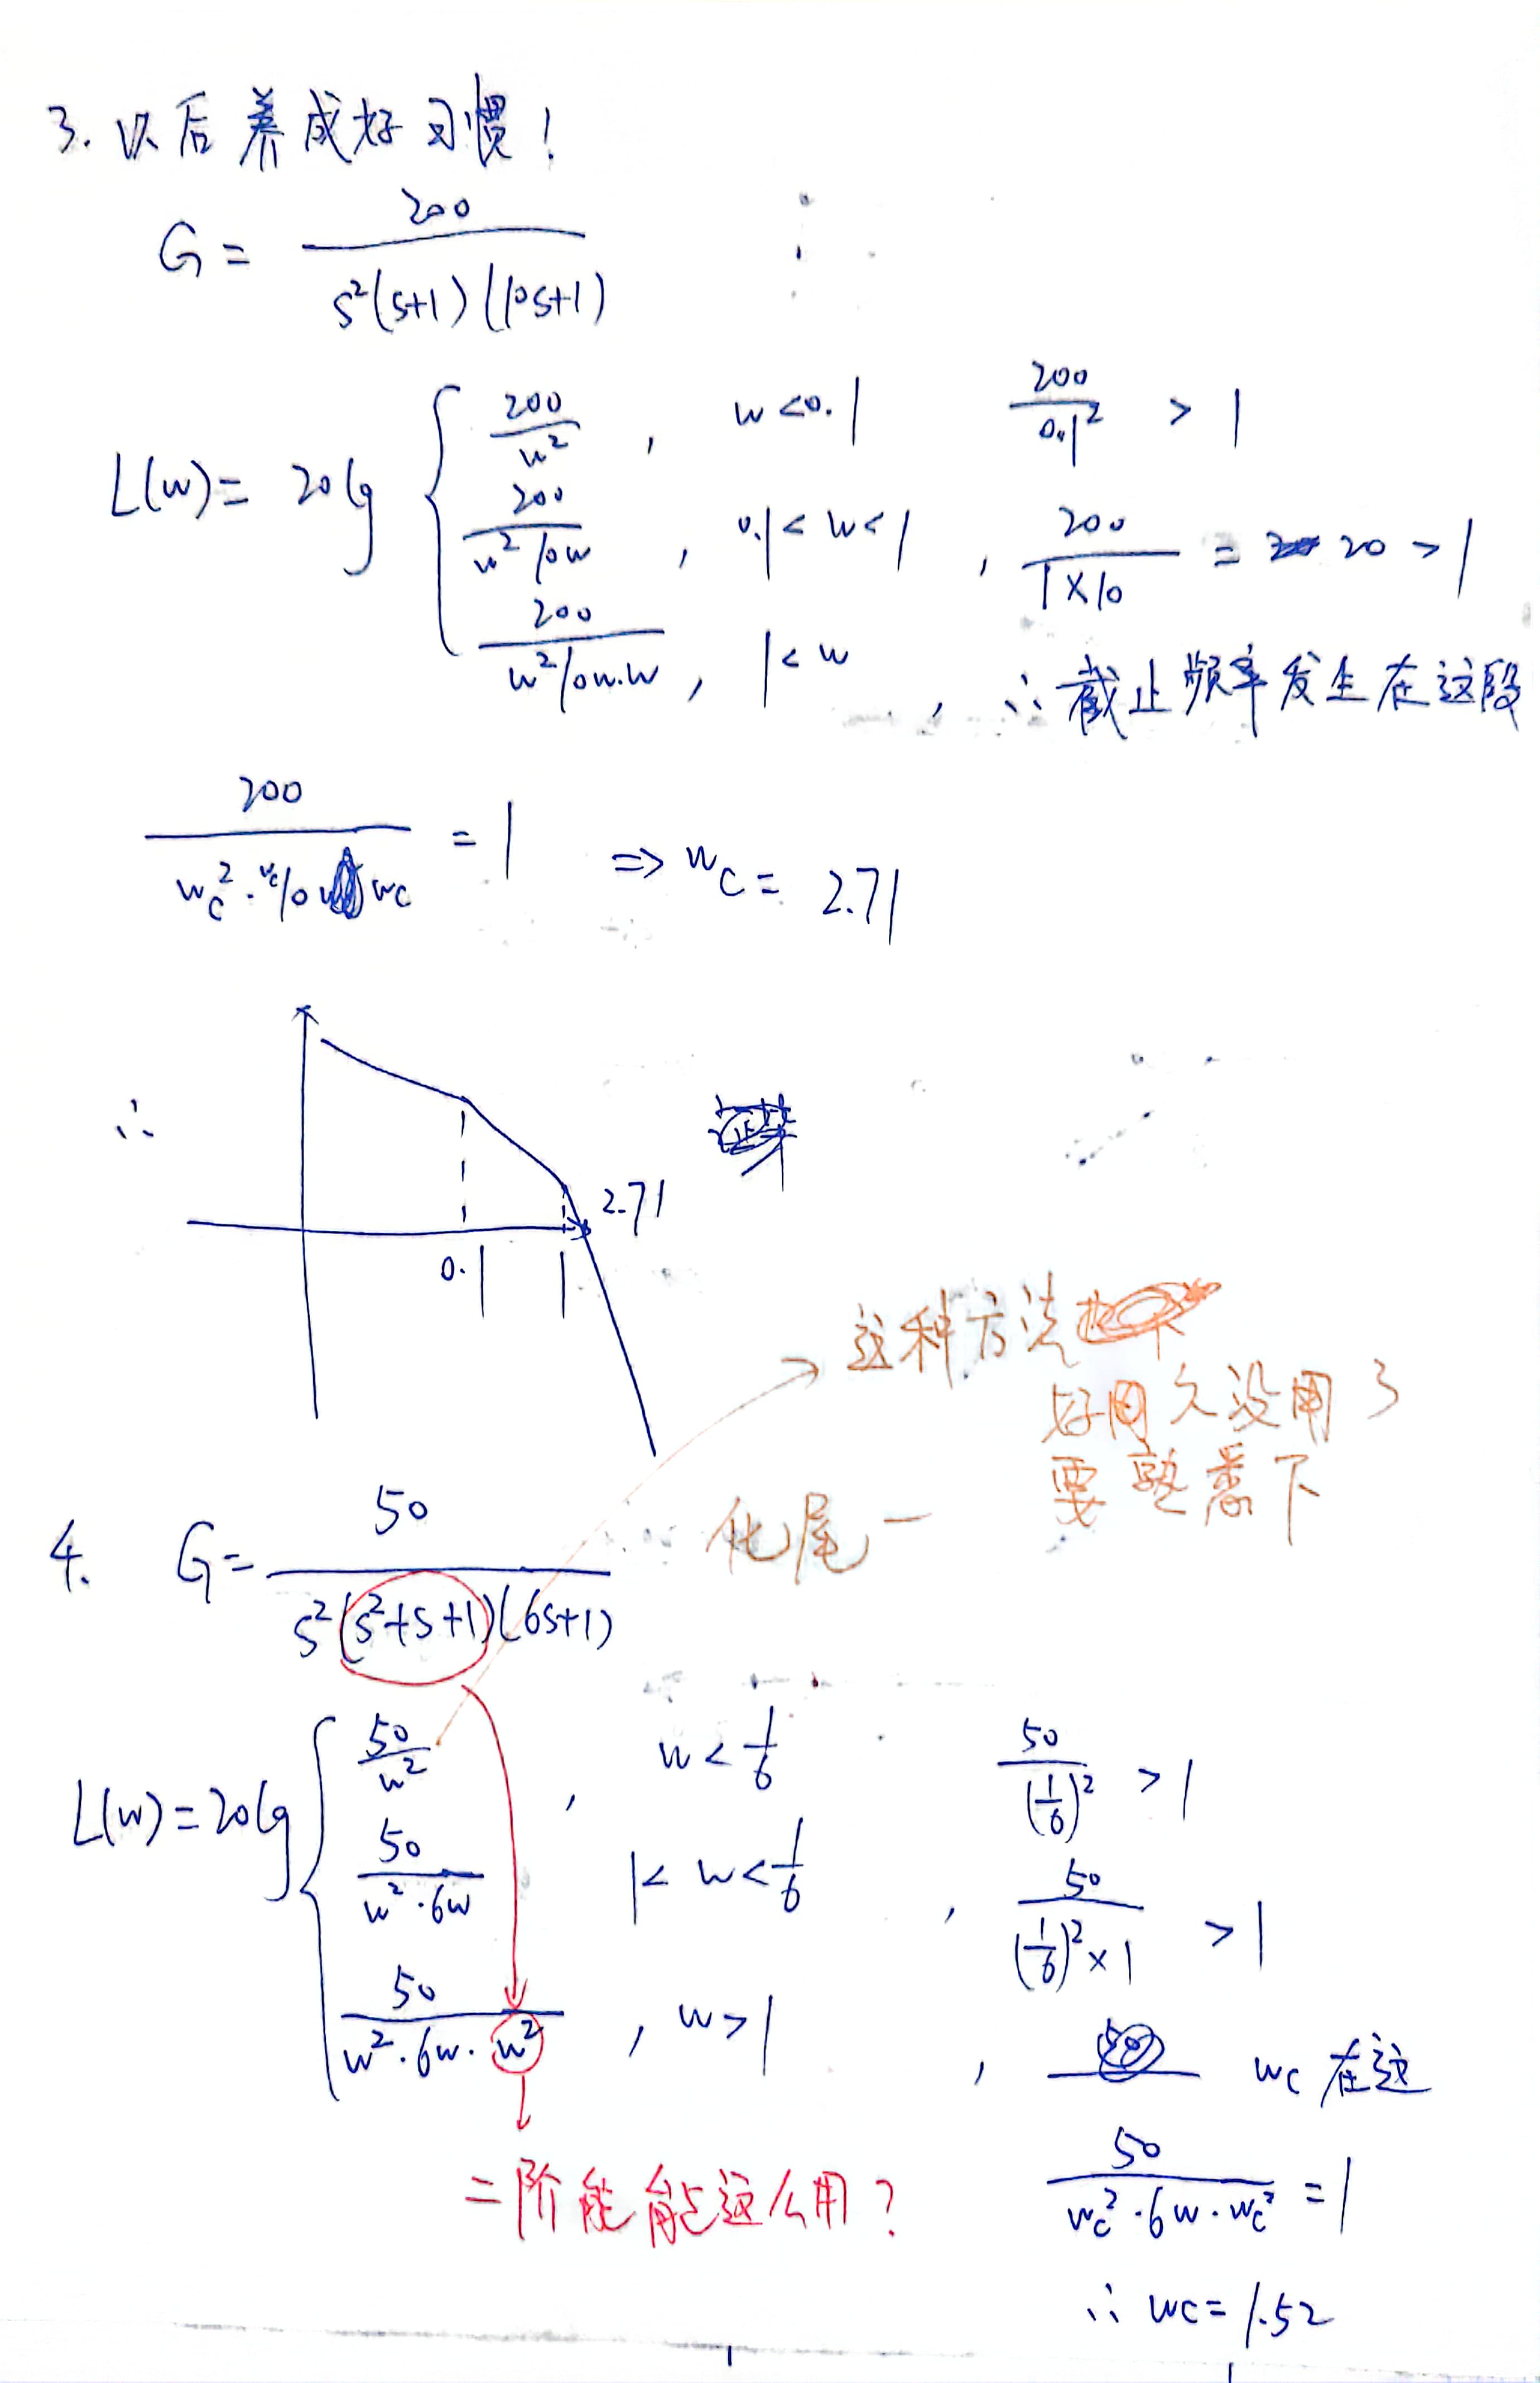 3. 以后养成好习惯！
G = 200 / s²(s+1)(10s+1)
L(w) = 20lg { 200/w² , w<0.1 200/0.1² > 1
200/w²10w , 0.1<w<1 , 200/1×10 = 20 > 1
200/w²10w·w , 1<w , ∴ 截止频率发生在这段
200 / wc²·10wc = 1 ⇒ wc = 2.71
∴
2.71
0.1 1
→ 这种方法
好久没用了
要熟悉下
化尾一
4. G = 50 / s²(s²+s+1)(6s+1)
L(w) = 20lg { 50/w² , w<1/6 50/(1/6)² > 1
50/w²·6w , 1<w<1/6 , 50/(1/6)²×1 > 1
50/w²·6w·w² , w>1 , wc 在这
二阶能能这么用？
50 / wc²·6w·wc² = 1
∴ wc = 1.52